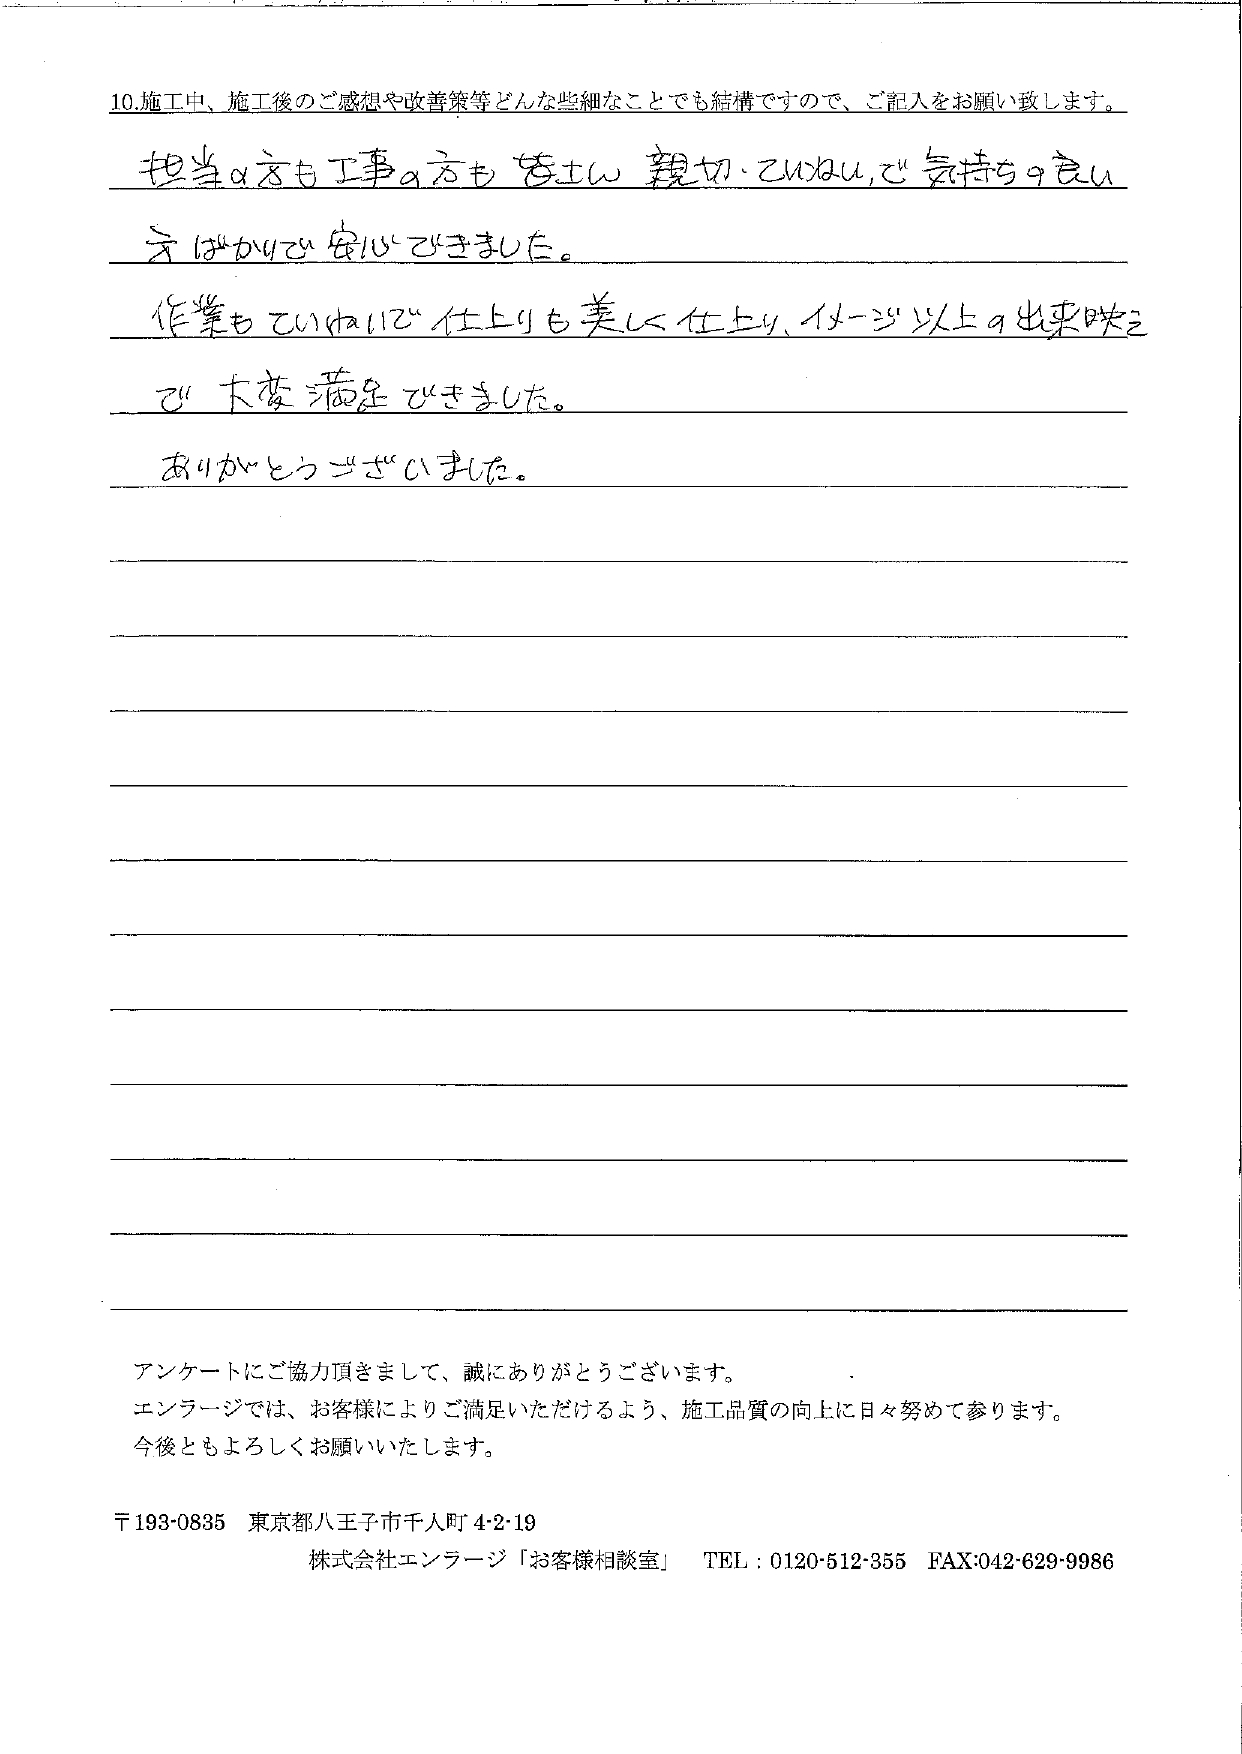 10.施工中、施工後のご感想や改善策等どんな些細なことでも結構ですので、ご記入をお願い致します。
担当の方も工事の方も皆さん 親切・ていねい,で気持ちの良い
方ばかりで安心できました。
作業もていねいで仕上りも美しく仕上り、イメージ以上の出来映え
で 大変満足できました。
ありがとうございました。
アンケートにご協力頂きまして、誠にありがとうございます。
エンラージでは、お客様によりご満足いただけるよう、施工品質の向上に日々努めて参ります。
今後ともよろしくお願いいたします。
〒193-0835 東京都八王子市千人町 4-2-19
株式会社エンラージ「お客様相談室」 TEL：0120-512-355 FAX:042-629-9986